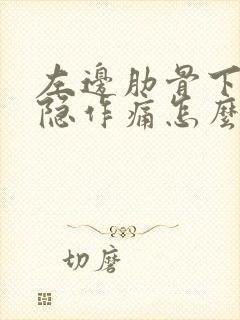 左邊肋骨下
隐作痛怎麼
切磨